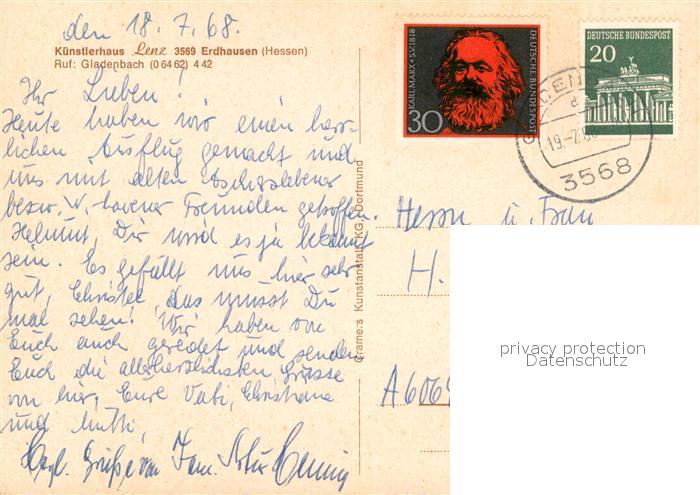 den 18.7.68.
Künstlerhaus Lenz 3569 Erdhausen (Hessen)
Ruf: Gladenbach (0 64 62) 4 42
Ihr Lieben!
Heute haben wir einen herr-
lichen Ausflug gemacht und
uns mit alten Aschersebener
bezw. W.-havener Freunden getroffen.
Helmut, Dir wird es ja bekannt
sein. Es gefällt uns hier sehr
gut, Christel, das musst Du
mal sehen! Wir haben von
Euch auch geredet und senden
Euch die allerherzlichsten Grüsse
von hier, Eure Vati, Christiane
und Mutti,
Herzl. Grüße von Fam. Artur
KARL MARX * 5.V.1818
DEUTSCHE BUNDESPOST
30
DEUTSCHE BUNDESPOST
20
19.-7.68
3568
Cramers Kunstanstalt KG, Dortmund
Herrn u. Frau
H.
A 6064
privacy protection
Datenschutz